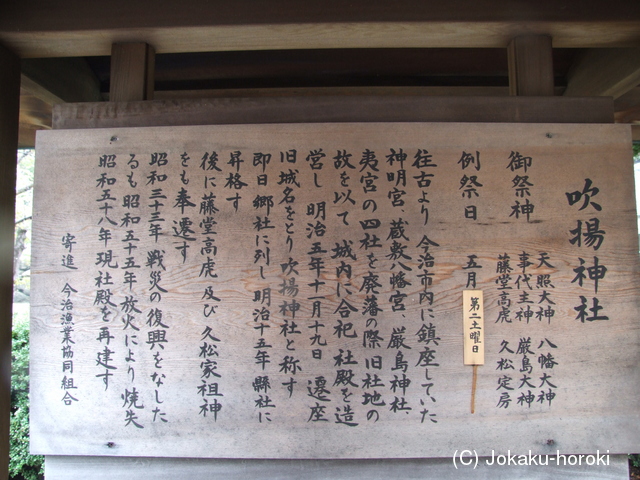 吹揚神社
御祭神
天照大神 八幡大神
事代主神 厳島大神
藤堂高虎 久松定房
例祭日 五月
第二土曜日
往古より 今治市内に鎮座していた
神明宮 蔵敷八幡宮 厳島神社
夷宮の四社を廃藩の際 旧社地の
故を以て 城内に合祀 社殿を造
営し 明治五年十一月十九日 遷座
旧城名をとり吹揚神社と称す
即日郷社に列し 明治十五年縣社に
昇格す
後に藤堂高虎 及び 久松家祖神
をも奉遷す
昭和三十三年 戦災の復興をなした
るも昭和五十五年 放火により 焼失
昭和五十八年 現社殿を 再建す
寄進 今治漁業協同組合
(C) Jokaku-horoki